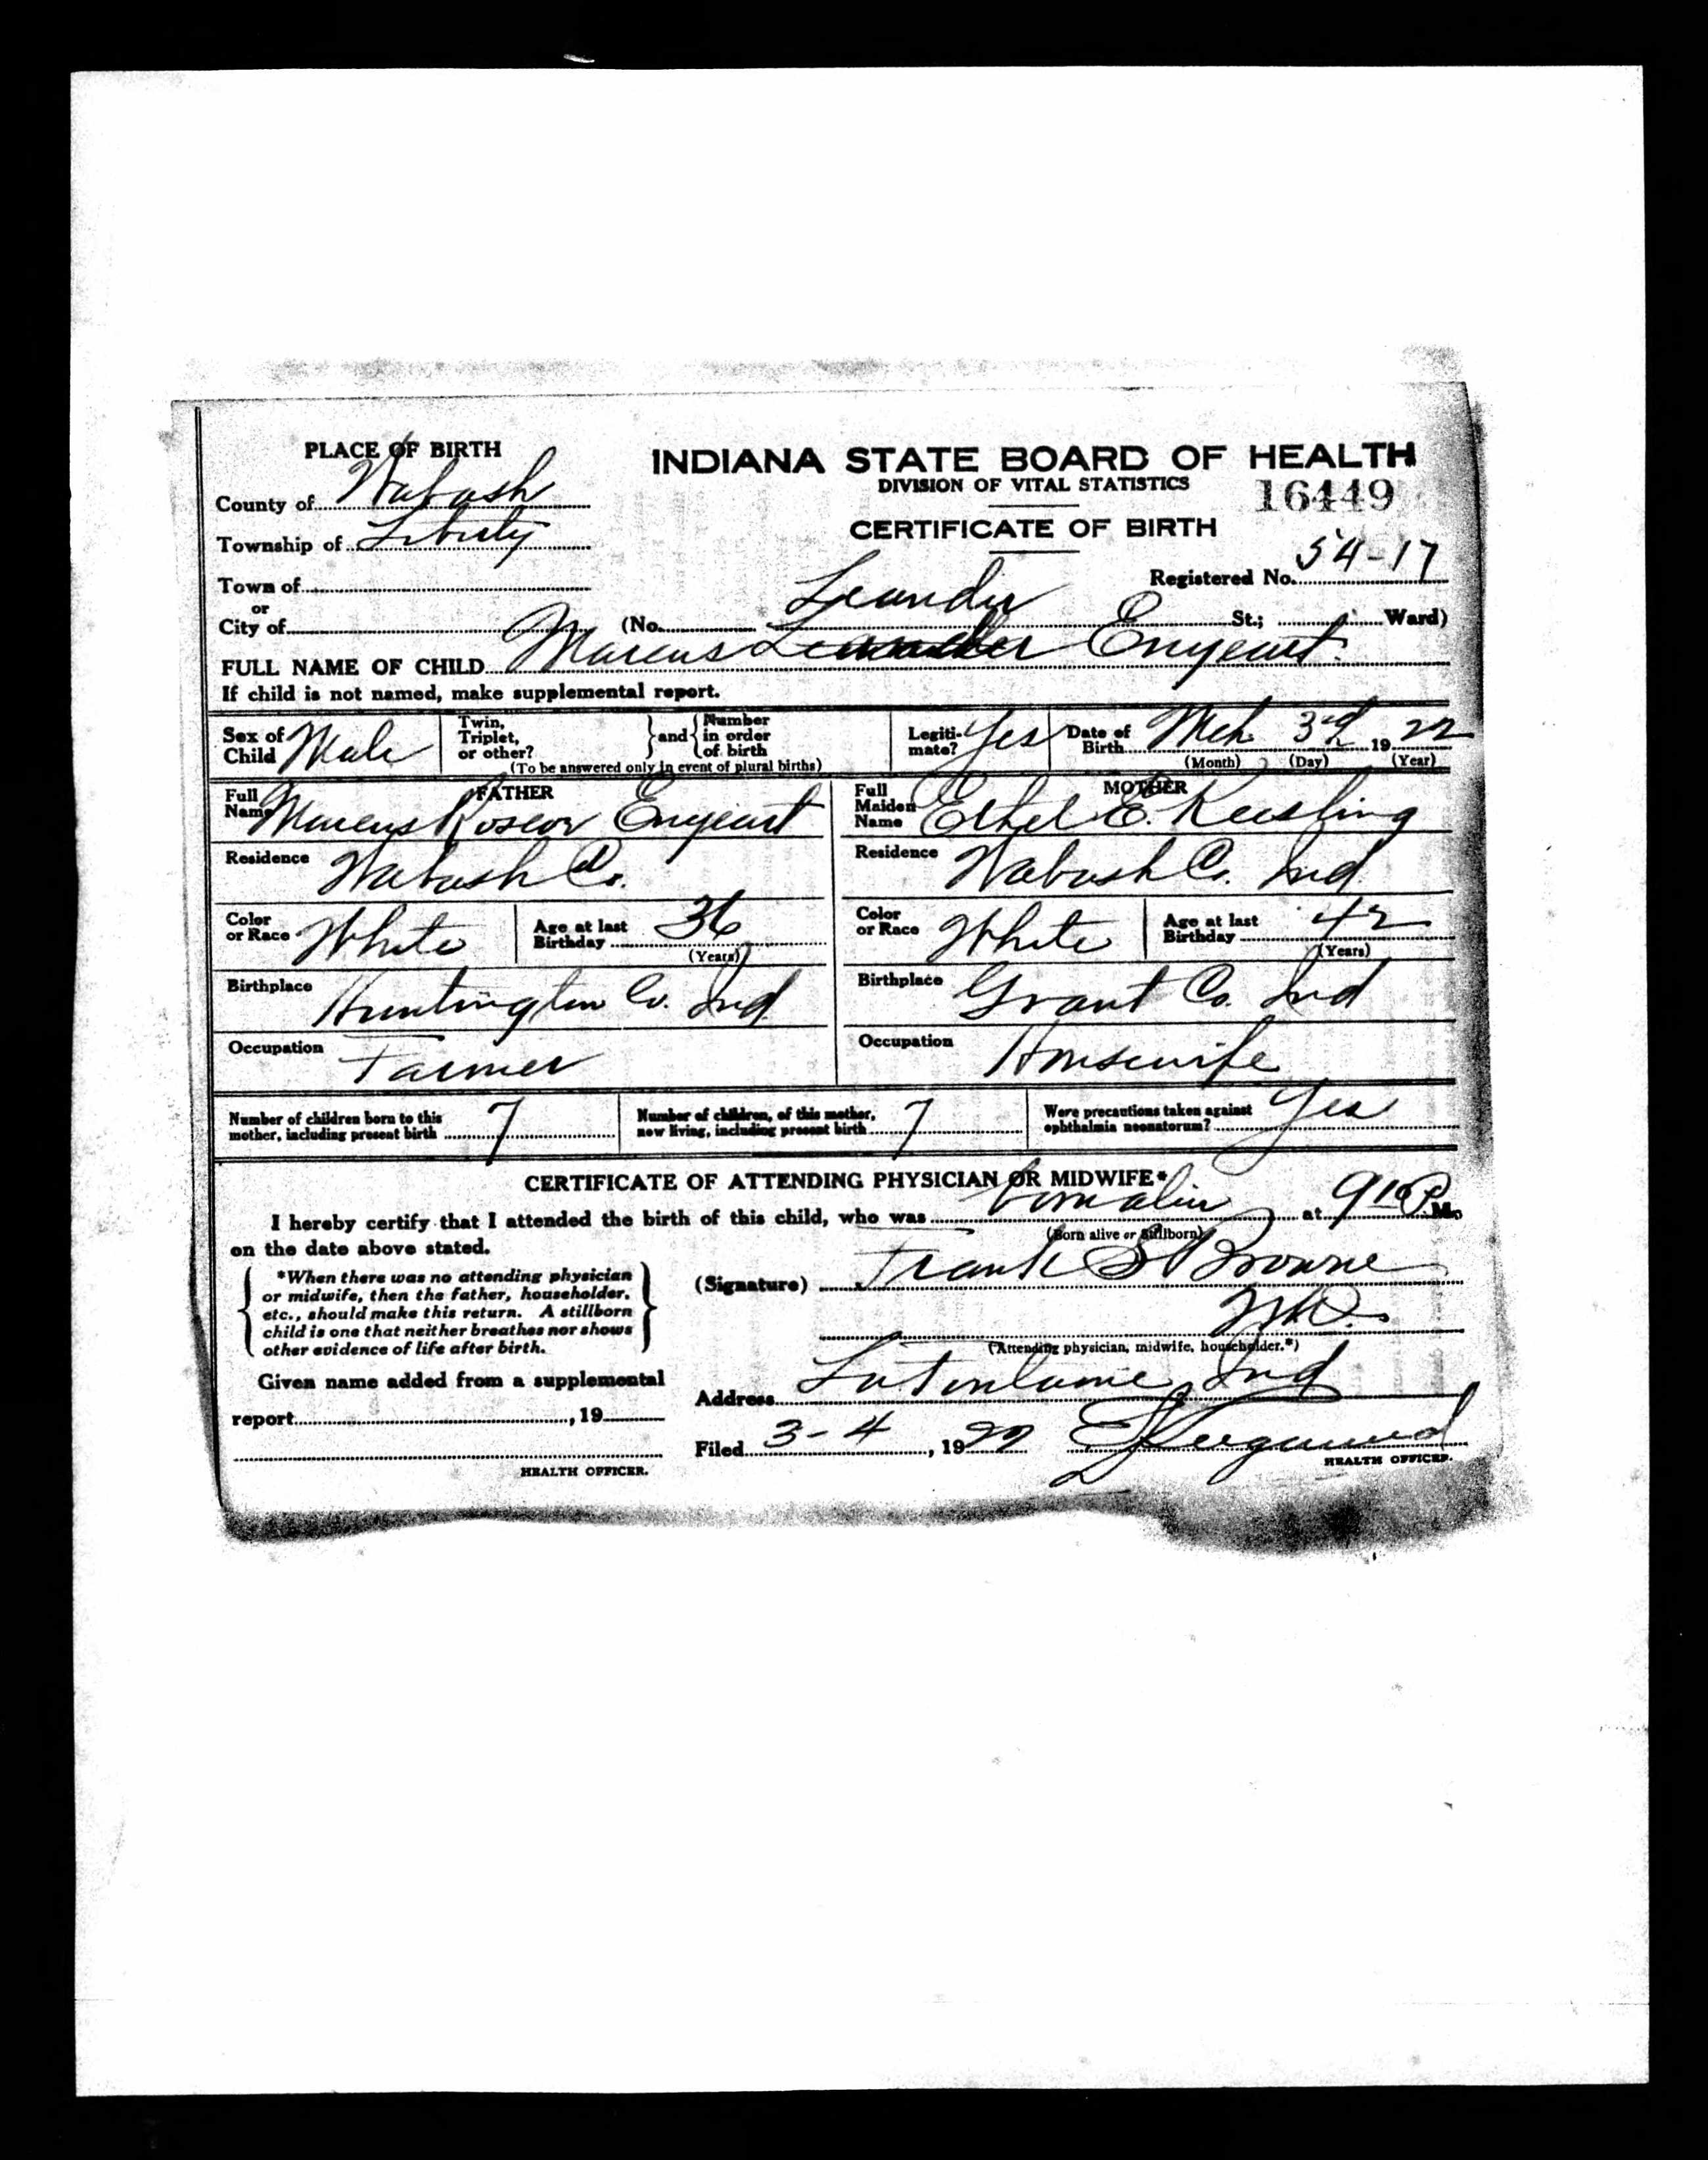 PLACE OF BIRTH
INDIANA STATE BOARD OF HEALTH
DIVISION OF VITAL STATISTICS
16449
County of Wabash
CERTIFICATE OF BIRTH
Township of Liberty
Registered No. 54-17
Town of
or
Leander
City of (No. St.; Ward)
FULL NAME OF CHILD Marcus Leander Enyeart
If child is not named, make supplemental report.
Sex of Child Male
Twin, Triplet, or other? and Number in order of birth
(To be answered only in event of plural births)
Legitimate? Yes
Date of Birth Mch 3rd 1922
(Month) (Day) (Year)
FATHER
Full Name Marcus Roscor Enyeart
Residence Wabash Co.
Color or Race White
Age at last Birthday 36
(Years)
Birthplace Huntington Co. Ind
Occupation Farmer
MOTHER
Full Maiden Name Ethel E. Keesling
Residence Wabash Co. Ind.
Color or Race White
Age at last Birthday 42
(Years)
Birthplace Grant Co. Ind
Occupation Housewife
Number of children born to this mother, including present birth 7
Number of children, of this mother, now living, including present birth 7
Were precautions taken against ophthalmia neonatorum? Yes
CERTIFICATE OF ATTENDING PHYSICIAN OR MIDWIFE*
I hereby certify that I attended the birth of this child, who was born alive at 9 10 P. M.
(Born alive or Stillborn)
on the date above stated.
*When there was no attending physician
or midwife, then the father, householder,
etc., should make this return. A stillborn
child is one that neither breathes nor shows
other evidence of life after birth.
(Signature) Frank S Browne
M.D.
(Attending physician, midwife, householder.*)
Given name added from a supplemental
report , 19
HEALTH OFFICER.
Address Lafontaine, Ind
Filed 3-4, 1922
HEALTH OFFICER.